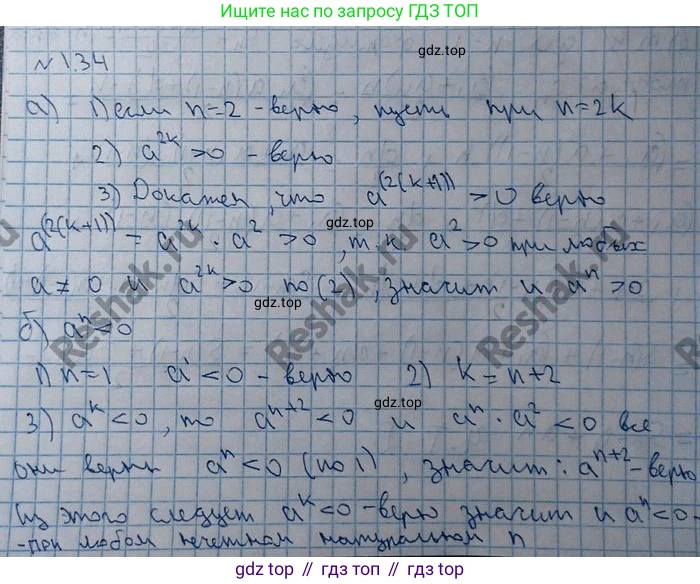 Ищите нас по запросу ГДЗ ТОП
gdz.top
№ 1.34
а) 1) если n=2 - верно, пусть при n=2k
2) a^{2k} > 0 - верно
3) Докажем, что a^{(2(k+1))} > 0 верно
gdz.top
a^{(2(k+1))} = a^{2k} · a^2 > 0, т.к a^2 > 0 при любых
a ≠ 0 и a^{2k} > 0 по (2), значит и a^n > 0
gdz.top
б) a^n < 0
1) n=1 a^1 < 0 - верно 2) k = n+2
gdz.top
3) a^k < 0, то a^{n+2} < 0 и a^n · a^2 < 0 все
они верны a^n < 0 (по 1), значит: a^{n+2} - верно
gdz.top
(из этого следует a^k < 0 - верно значит и a^n < 0 -
- при любом нечетном натуральном n
gdz.top // гдз топ // gdz.top
Reshak.ru
Reshak.ru
Reshak.ru